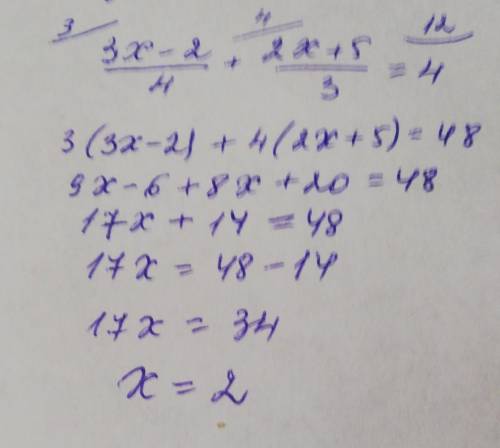 3 4 12
3x-2/4 + 2x+5/3 = 4
3(3x-2) + 4(2x+5) = 48
9x-6+8x+20=48
17x+14=48
17x=48-14
17x=34
x=2